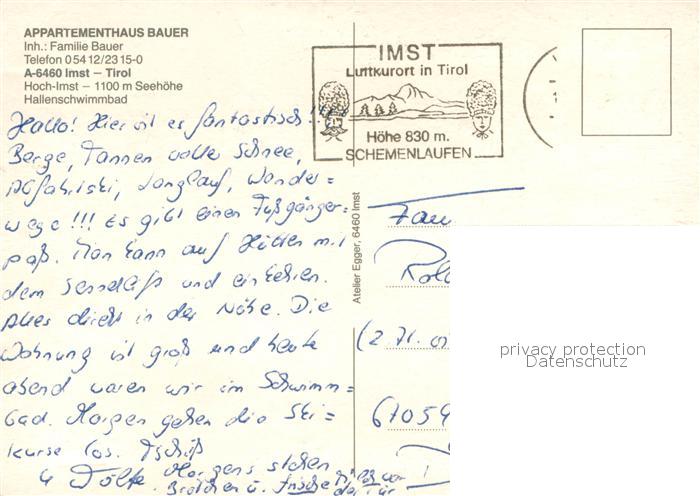 APPARTEMENTHAUS BAUER
Inh.: Familie Bauer
Telefon 0 54 12/23 15-0
A-6460 Imst – Tirol
Hoch-Imst – 1100 m Seehöhe
Hallenschwimmbad
IMST
Luftkurort in Tirol
Höhe 830 m.
SCHEMENLAUFEN
Hallo! Hier ist es fantastisch!!!
Berge, Tannen voller Schnee,
Abfahrtski, Langlauf, Wander=
wege!!! Es gibt einen Fußgänger=
paß. Man kann auf Hütten mit
dem Sessellift und einkehren.
Alles direkt in der Nähe. Die
Wohnung ist groß und heute
abend waren wir im Schwimm=
bad. Morgen gehen die Ski=
kurse los. Tschüß
Morgens stehen
Brötchen u. frische Milch vor
der Tür
Atelier Egger, 6460 Imst
Fam
(2.71.
67059
privacy protection
Datenschutz